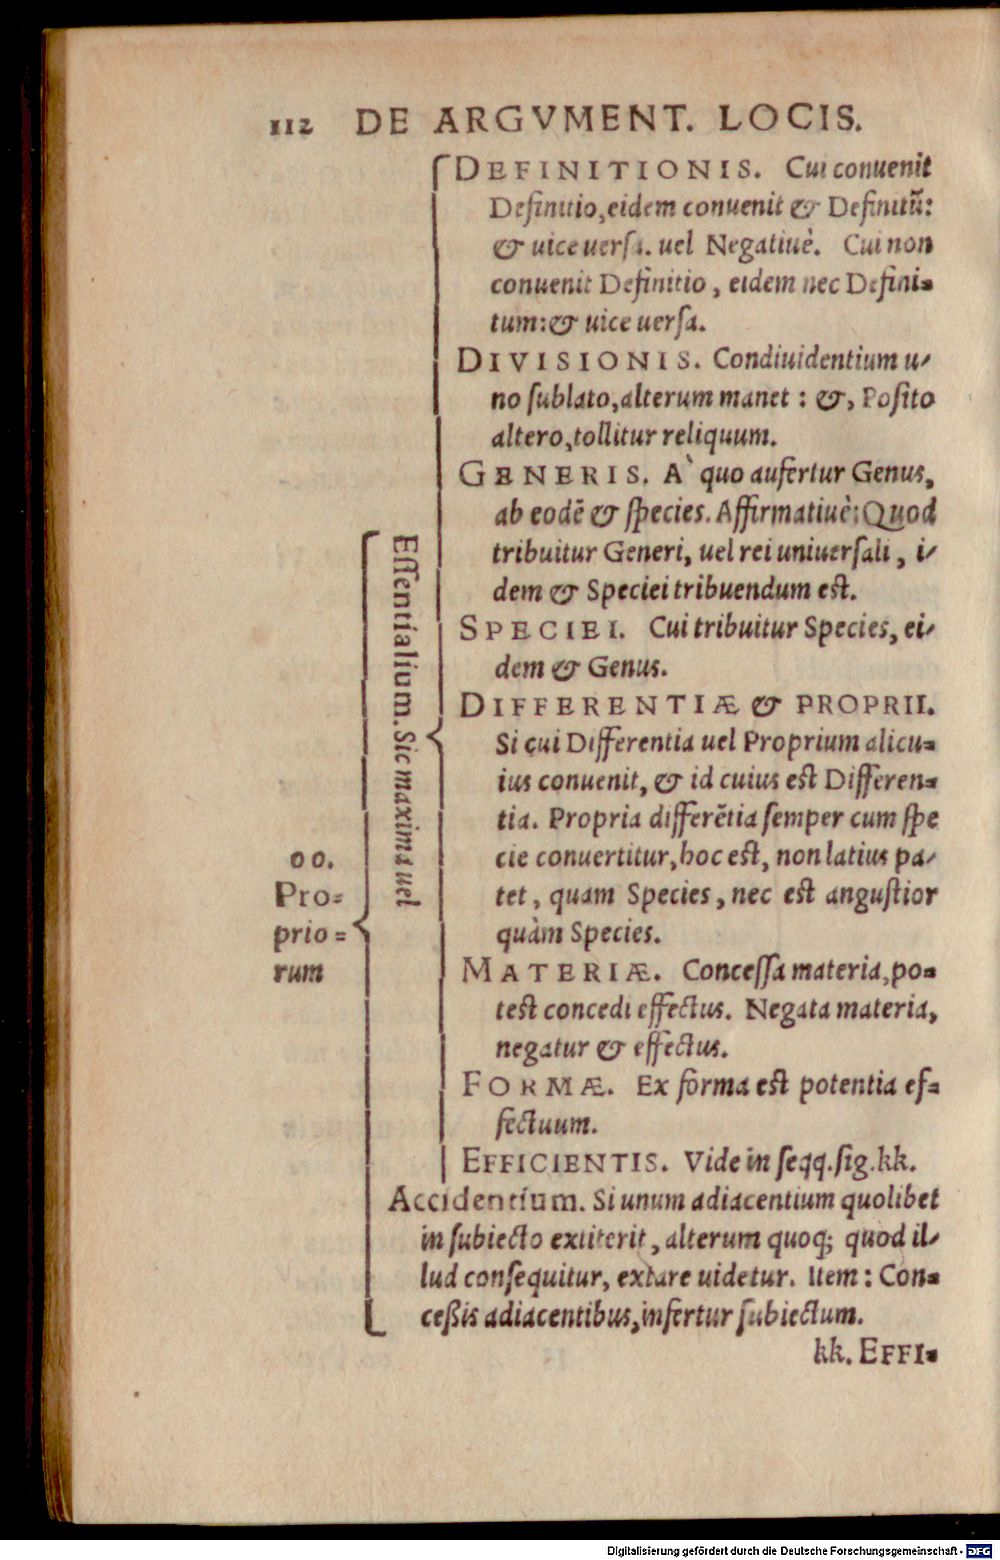 112 DE ARGVMENT. LOCIS.
oo.
Pro-
prio-
rum
Essentialium. Sic maxima uel
DEFINITIONIS. Cui conuenit
Definitio, eidem conuenit & Definitū:
& uice uersa. uel Negatiuè. Cui non
conuenit Definitio, eidem nec Defini-
tum: & uice uersa.
DIVISIONIS. Condiuidentium u-
no sublato, alterum manet: &, Posito
altero, tollitur reliquum.
GENERIS. A` quo aufertur Genus,
ab eodē & species. Affirmatiuè: Quod
tribuitur Generi, uel rei uniuersali, i-
dem & Speciei tribuendum est.
SPECIEI. Cui tribuitur Species, ei-
dem & Genus.
DIFFERENTIÆ & PROPRII.
Si cui Differentia uel Proprium alicu-
ius conuenit, & id cuius est Differen-
tia. Propria differētia semper cum spe
cie conuertitur, hoc est, non latius pa-
tet, quam Species, nec est angustior
quàm Species.
MATERIÆ. Concessa materia, po-
test concedi effectus. Negata materia,
negatur & effectus.
FORMÆ. Ex forma est potentia ef-
fectuum.
EFFICIENTIS. Vide in seqq. sig. kk.
Accidentium. Si unum adiacentium quolibet
in subiecto extiterit, alterum quoq; quod il-
lud consequitur, extare uidetur. Item: Con-
ceßis adiacentibus, infertur subiectum.
kk. EFFI-
Digitalisierung gefördert durch die Deutsche Forschungsgemeinschaft - DFG